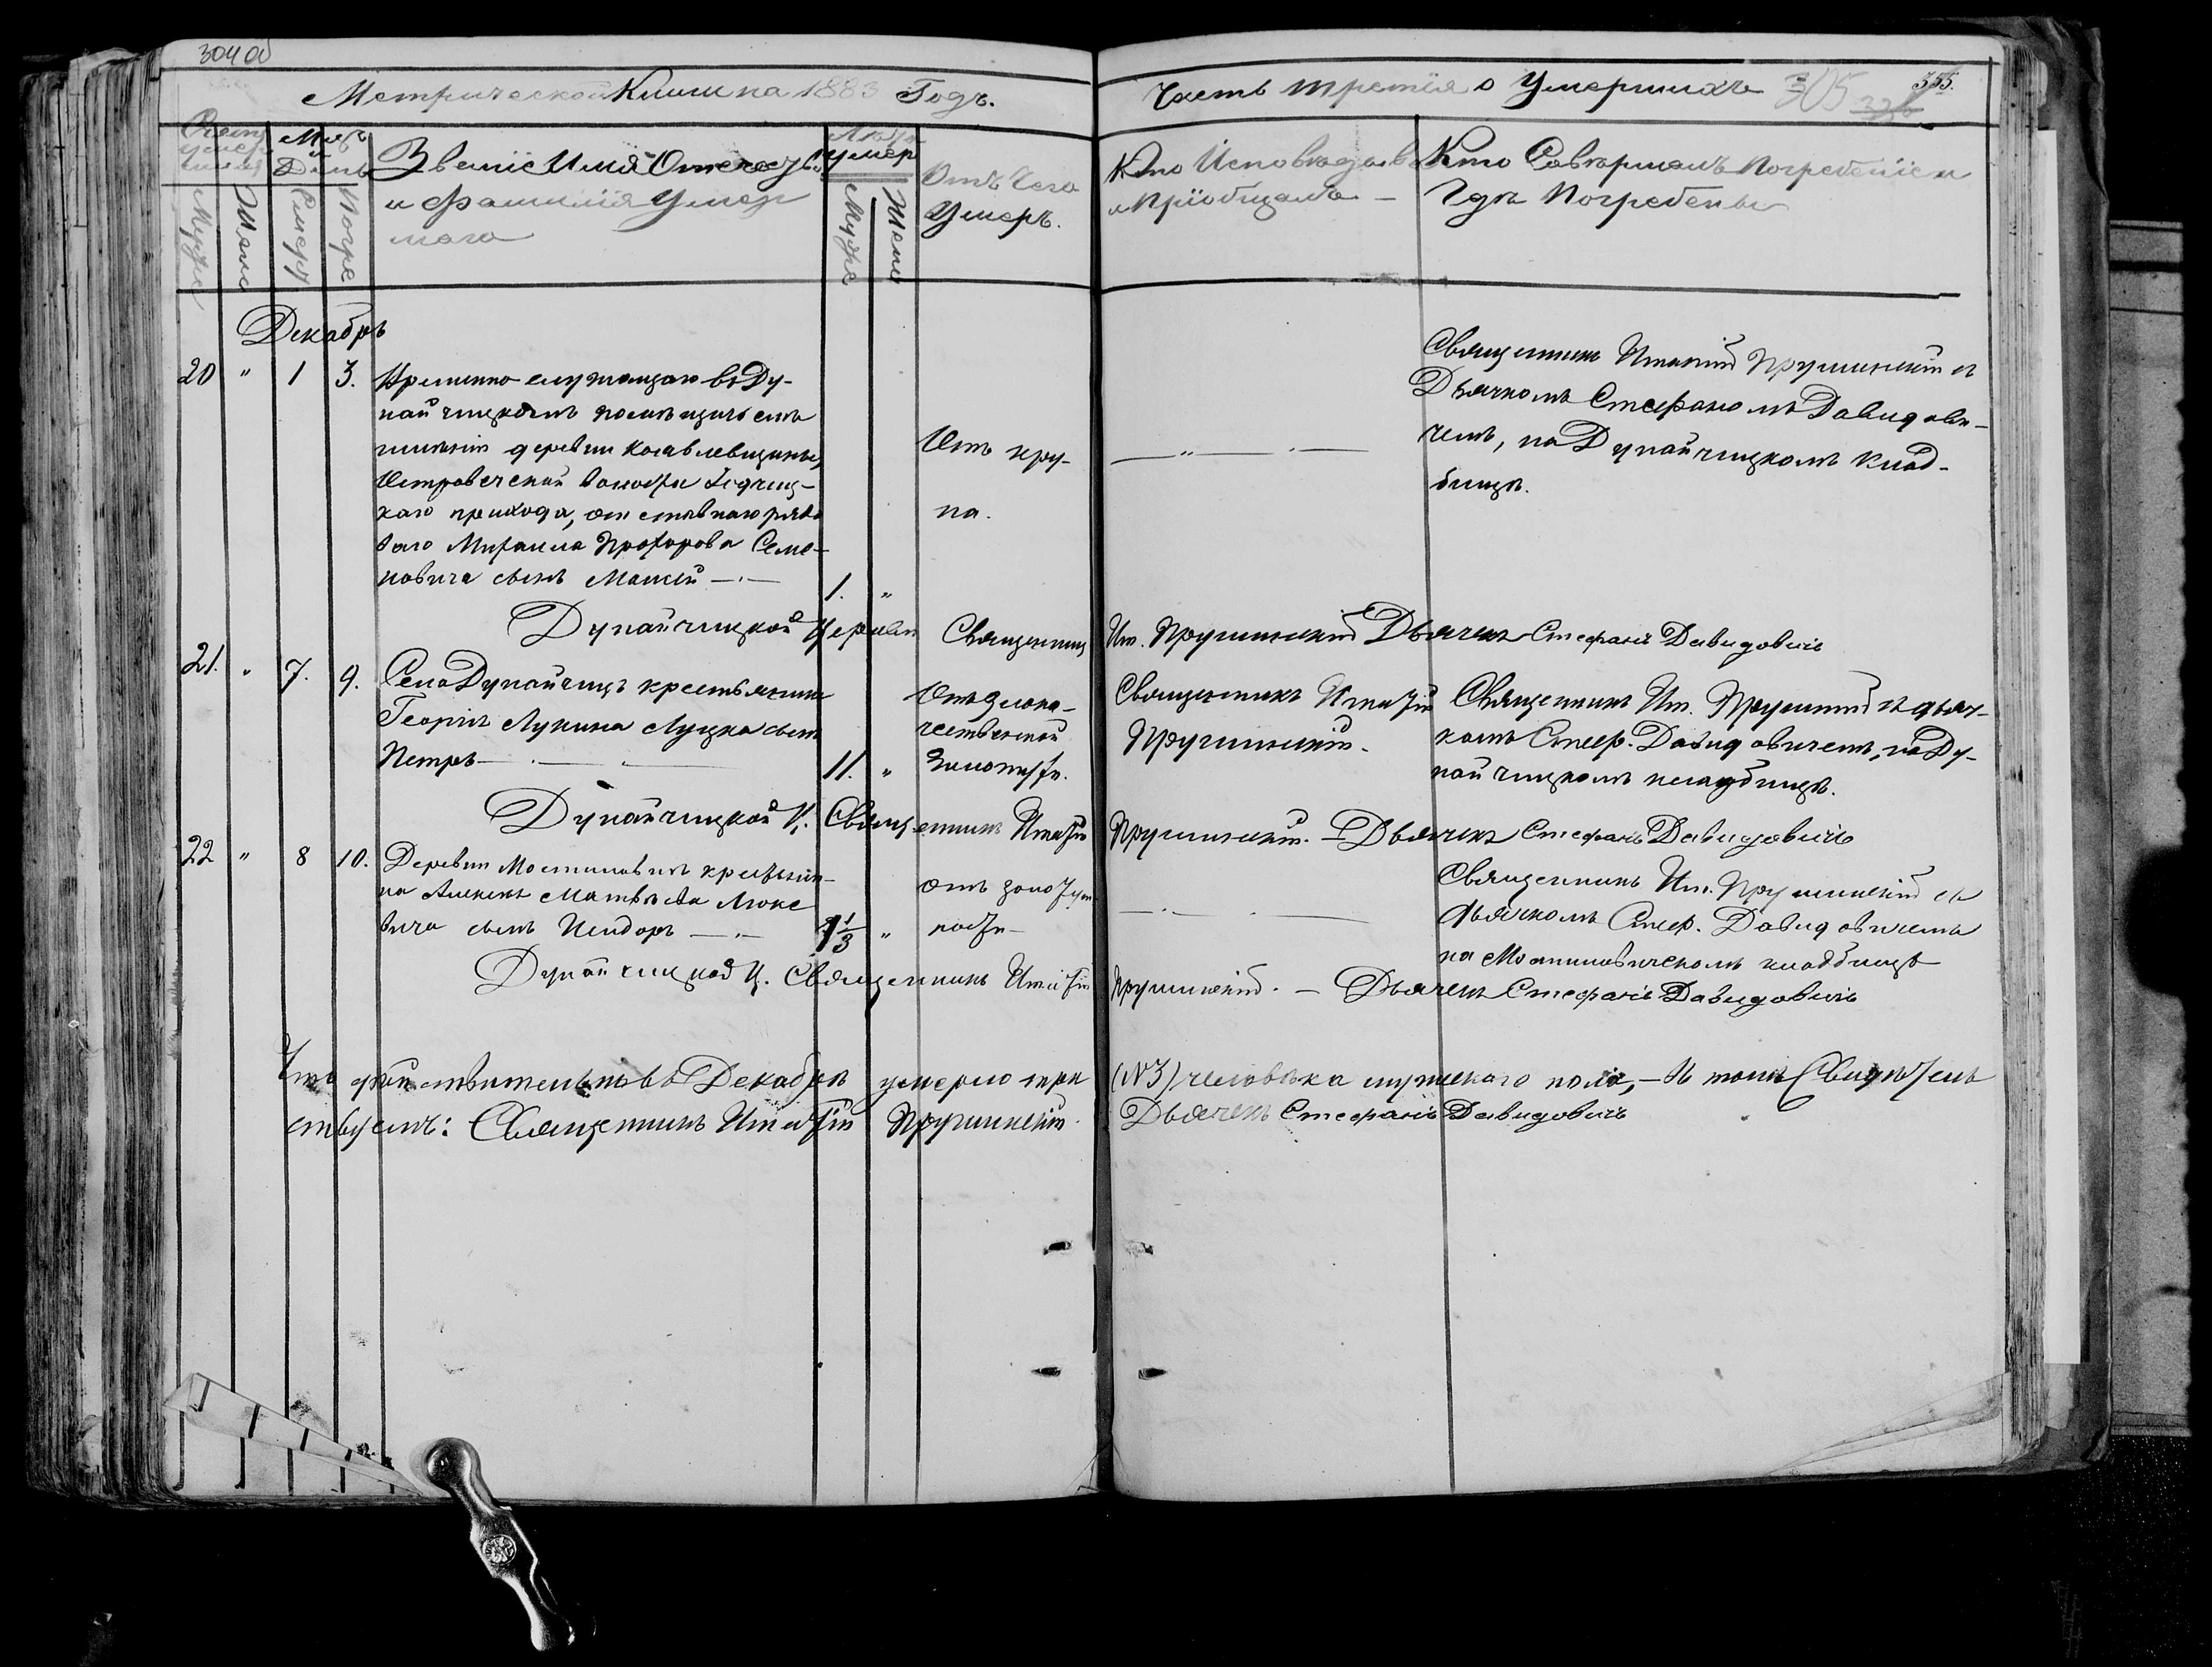 304 об
Метрической Книги на 1883 Годъ.
Часть третія о Умершихъ
305
335.
Счетъ умер шихъ
Мужс
Женс
Мѣс и День
Смерт
Погре
Званіе Имя Отечест
и Фамилія Умер
шаго
Лѣта умер
Муже
Женс
Отъ Чего
Умеръ.
Кто Исповѣдыва
и Пріобщалъ —
Кто Совершалъ Погребеніе и
Гдѣ Погребены
Декабрь
20 " 1 3.
Временно служащаго въ Ду-
найчицкомъ
деревни
волости
каго прихода, отставного рядо
ваго Михаила Прохорова Семе-
новича сынъ Моисей —·—
1. "
Отъ кру-
па.
— " — · —
Священникъ Игнатій Прушинскій съ
Дьячкомъ Стефаномъ Давидови-
чемъ, на Дунайчицкомъ клад-
бищѣ.
Дунайчицкой Церкви Священник Иг. Прушинскій Дьячекъ Стефанъ Давидовичъ
21. " 7. 9.
Села Дунайчицъ крестьянина
Георгія Лукина Луцка сынъ
Петръ — · —
11. "
Отъ злока-
чественной
золотухи.
Священникъ Игнатій
Прушинскій.
Священникъ Иг. Прушинскій съ дьяч-
комъ Стеф. Давидовичемъ, на Ду-
найчицкомъ кладбищѣ.
Дунайчицкой Ц. Священникъ Игнатій Прушинскій. — Дьячекъ Стефанъ Давидовичъ
22 " 8 10.
Деревни Мостиловичъ крестьяни-
на Алексѣя Матвѣева
вича сынъ Исидоръ —·—
1 1/3 "
отъ золотуш
ности —
— · —
Священникъ Иг. Прушинскій съ
дьячкомъ Стеф. Давидовичемъ
на Мостиловичскомъ кладбищѣ
Дунайчицкой Ц. Священникъ Игнатій Прушинскій. — Дьячекъ Стефанъ Давидовичъ
Что дѣйствительно въ Декабрѣ умерло три (№ 3) человѣка мужескаго пола, — въ томъ Свидѣтель
ствуемъ: Священникъ Игнатій Прушинскій. Дьячекъ Стефанъ Давидовичъ